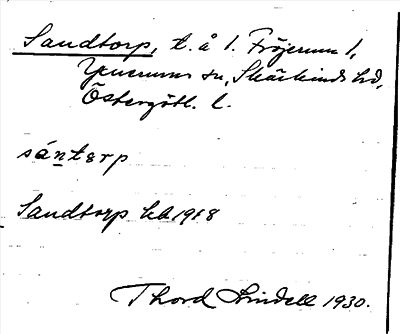 Sandtorp, t. å 1. Fröjerum 1,
Yxnerums sn, Skärkinds hd,
Östergötl. l.
sántɛrp
Sandtorp kb 1918
Thord Lindell 1930.